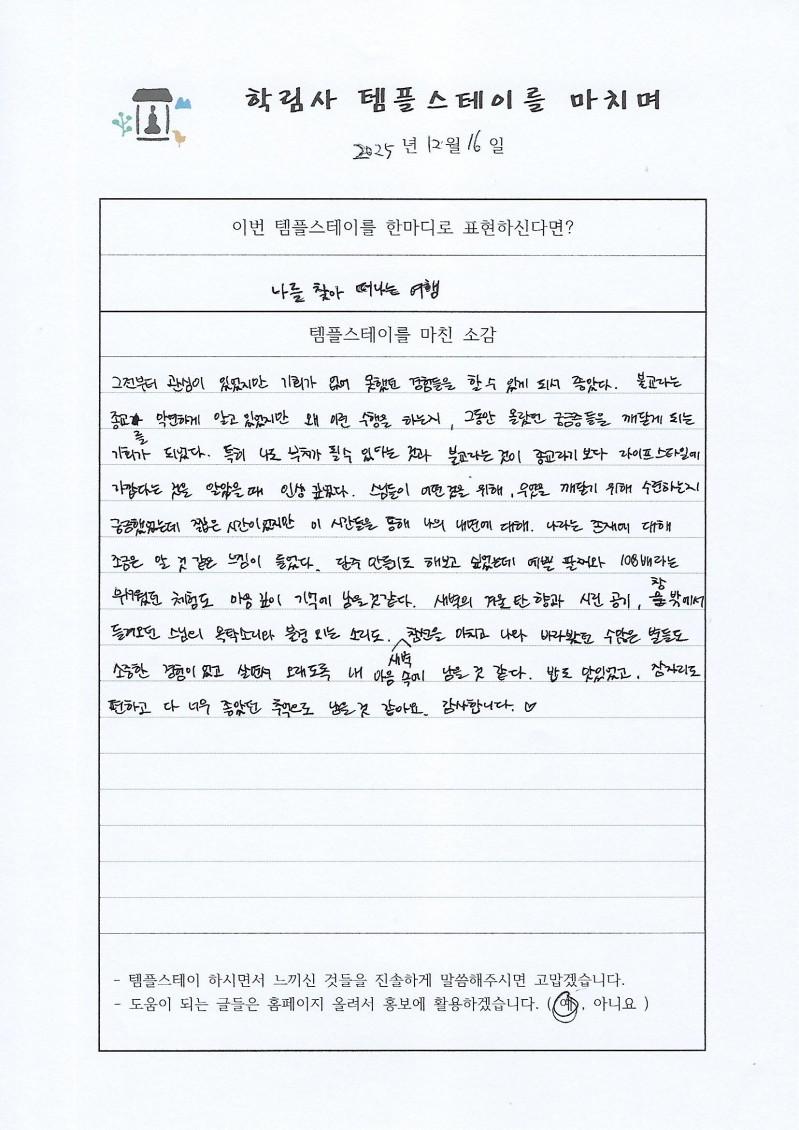 학림사 템플스테이를 마치며
2025 년 12 월 16 일
이번 템플스테이를 한마디로 표현하신다면?
나를 찾아 떠나는 여행
템플스테이를 마친 소감
그전부터 관심이 있었지만 기회가 없어 못했던 경험들을 할 수 있게 되서 좋았다. 불교라는
종교를 막연하게 알고 있었지만 왜 이런 수행을 하는지, 그동안 몰랐던 궁금증들을 깨닫게 되는
기회가 되었다. 특히 나도 부처가 될 수 있다는 것과 불교라는 것이 종교라기 보다 라이프스타일에
가깝다는 것을 알았을 때 인상 깊었다. 스님들이 어떤 것을 위해, 무엇을 깨닫기 위해 수련하는지
궁금했었는데 짧은 시간이었지만 이 시간들을 통해 나의 내면에 대해. 나라는 존재에 대해
조금은 알 것 같은 느낌이 들었다. 단주 만들기도 해보고 싶었는데 예쁜 팔찌와 108배라는
무서웠던 체험도 마음 깊이 기억에 남을 것 같다. 새벽의 겨울 탄 향과 시린 공기, 창 밖에서
들려오던 스님의 목탁소리와 불경 외는 소리도. 참선을 마치고 나와 바라봤던 새벽 수많은 별들도
소중한 경험이 었고 살면서 오래도록 내 마음 속에 남을 것 같다. 밥도 맛있었고, 잠자리도
편하고 다 너무 좋았던 추억으로 남을 것 같아요. 감사합니다. ♡
- 템플스테이 하시면서 느끼신 것들을 진솔하게 말씀해주시면 고맙겠습니다.
- 도움이 되는 글들은 홈페이지 올려서 홍보에 활용하겠습니다. ( 예 , 아니요 )